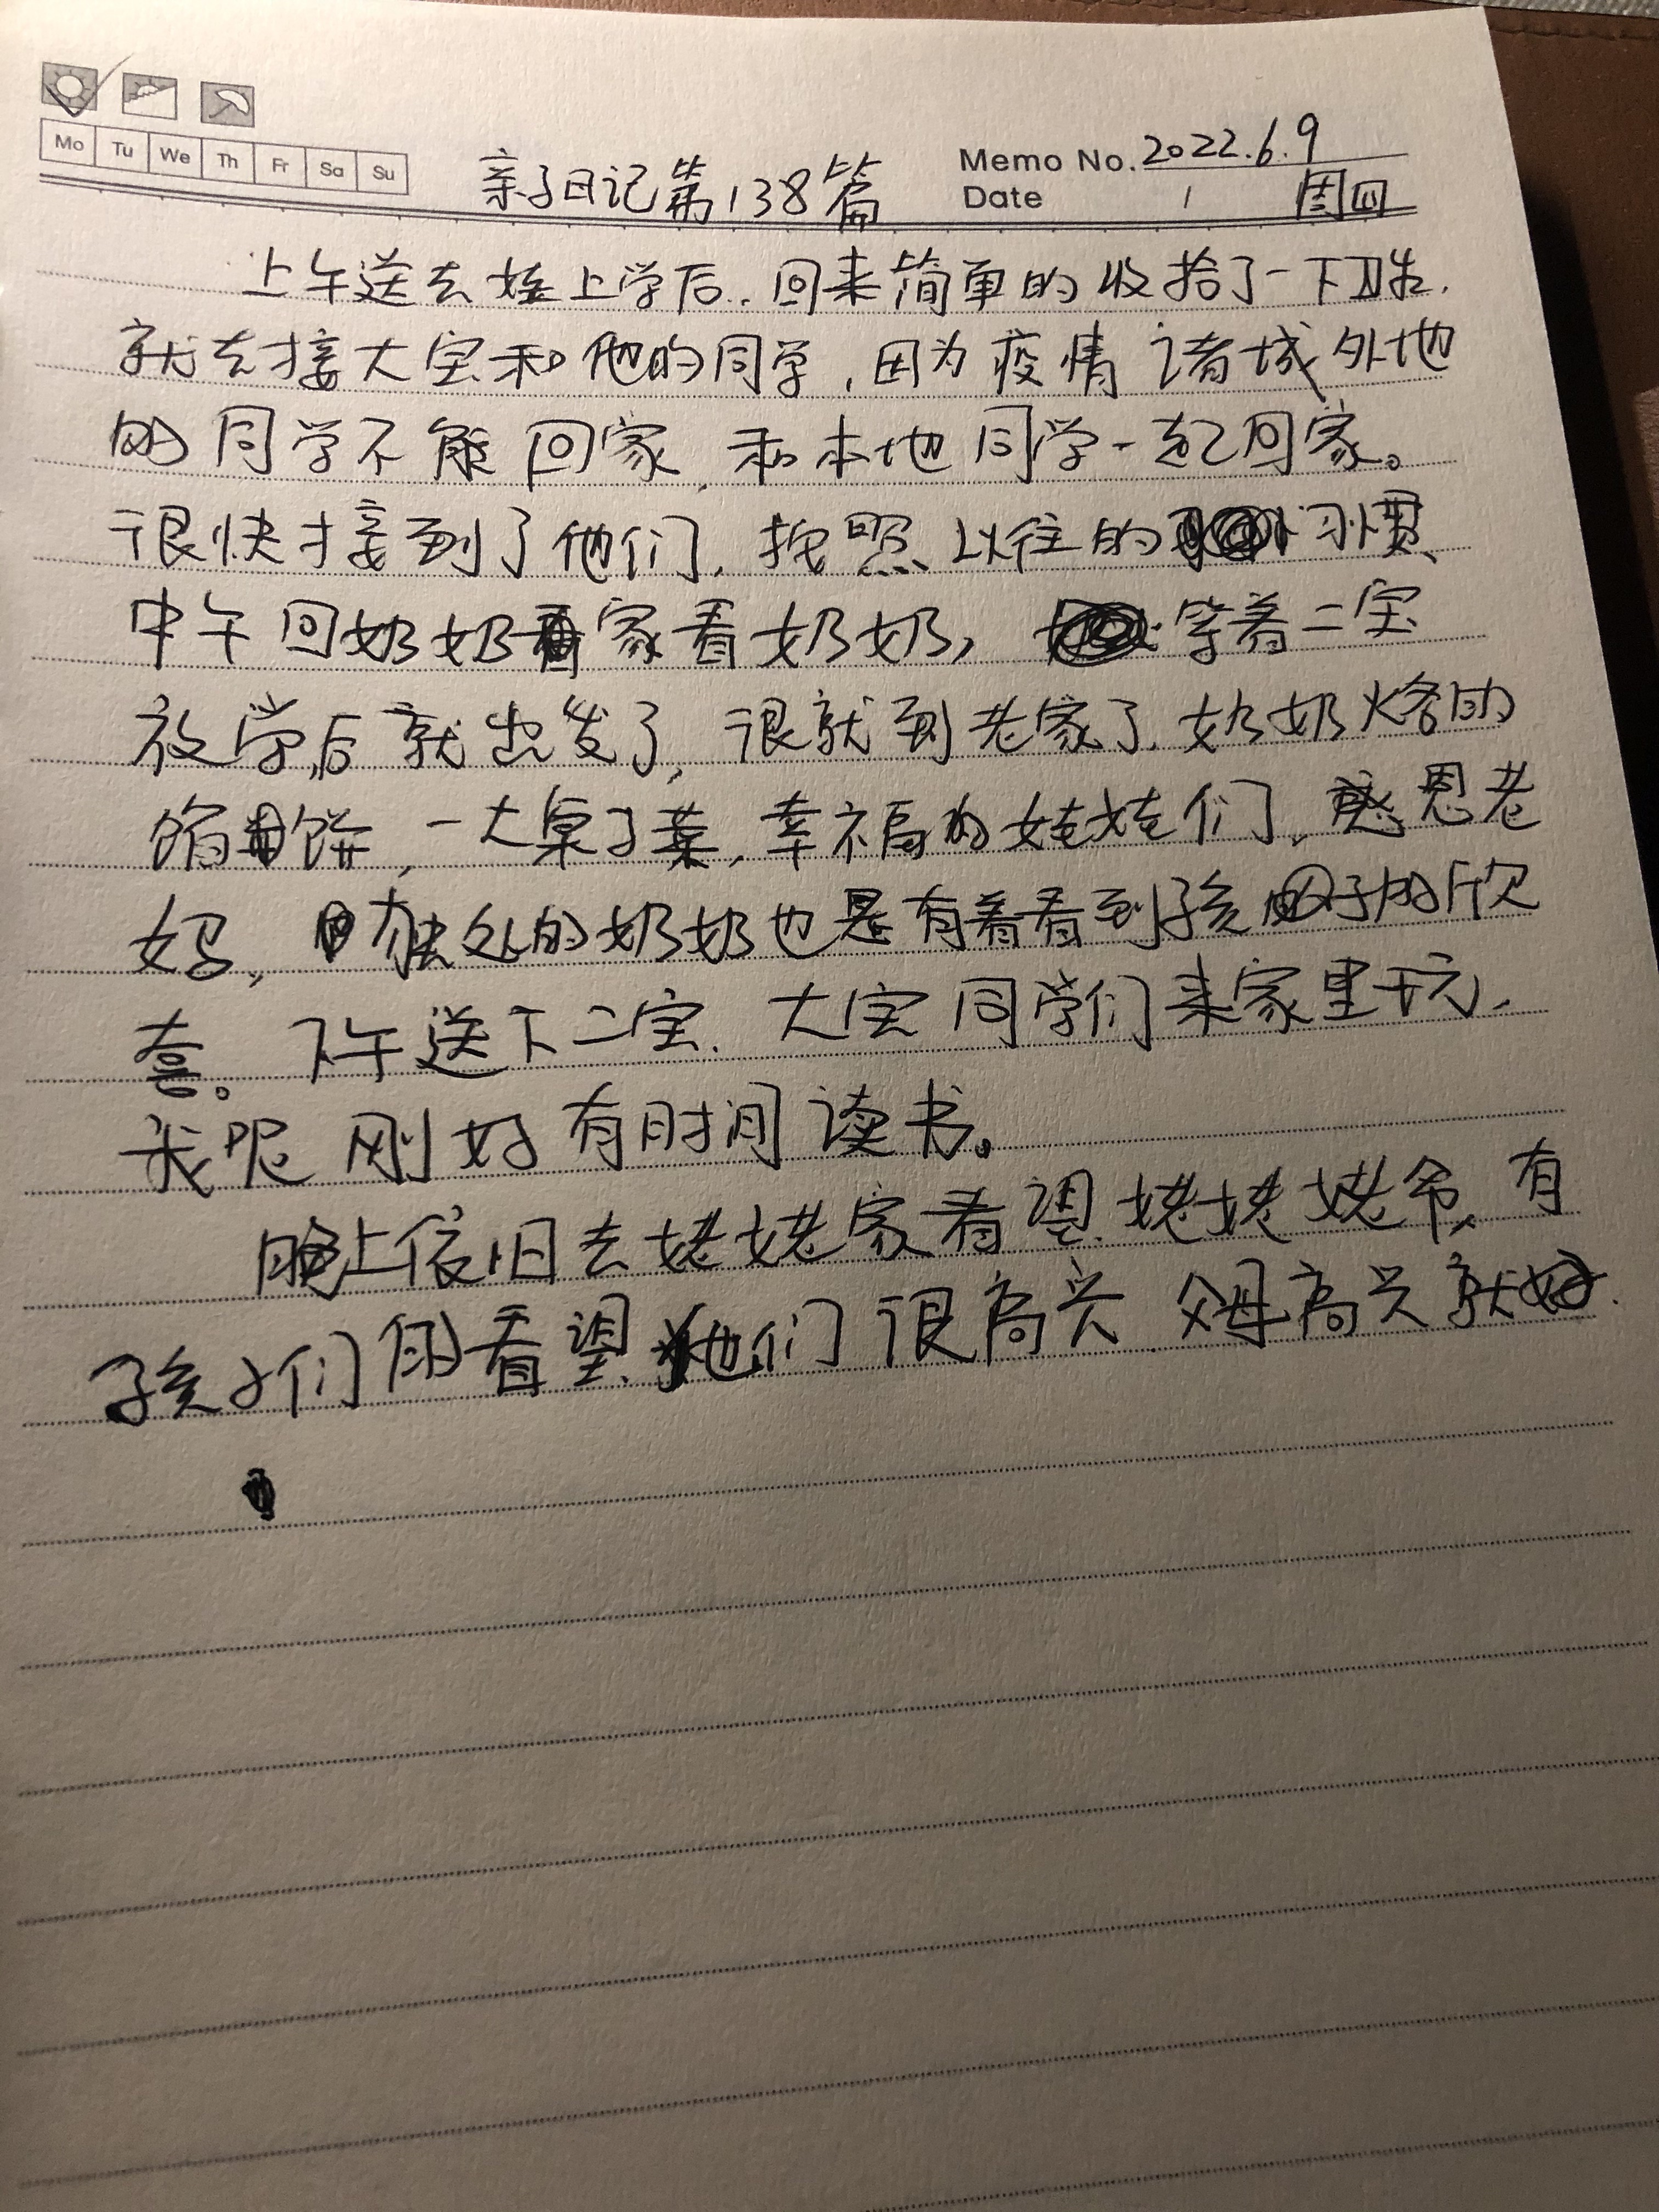 Mo Tu We Th Fr Sa Su
亲子日记第138篇
Memo No. 2022.6.9
Date / 周四
上午送去娃上学后,回来简单的收拾了一下卫生,
就去接大宝和他的同学,因为疫情诸城外地
的同学不能回家,和本地同学一起回家。
很快接到了他们,按照以往的习惯,
中午回奶奶家看奶奶,等着二宝
放学后就出发了,很就到老家了,奶奶烙的
馅饼,一大桌子菜,幸福的娃娃们,感恩老
妈,独处的奶奶也是有着看到孩子的欣
喜。下午送下二宝,大宝同学们来家里玩,
我呢刚好有时间读书。
晚上依旧去姥姥家看望姥姥姥爷,有
孩子们的看望,他们很高兴,父母高兴就好.